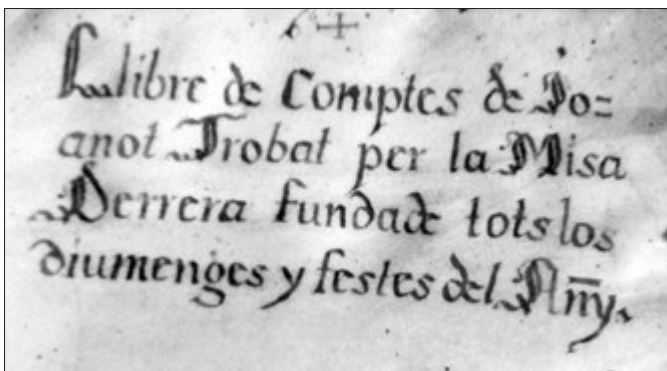 +
Llibre de Comptes de Jo=
anot Trobat per la Misa
Derrera fundade tots los
diumenges y festes del Añy.